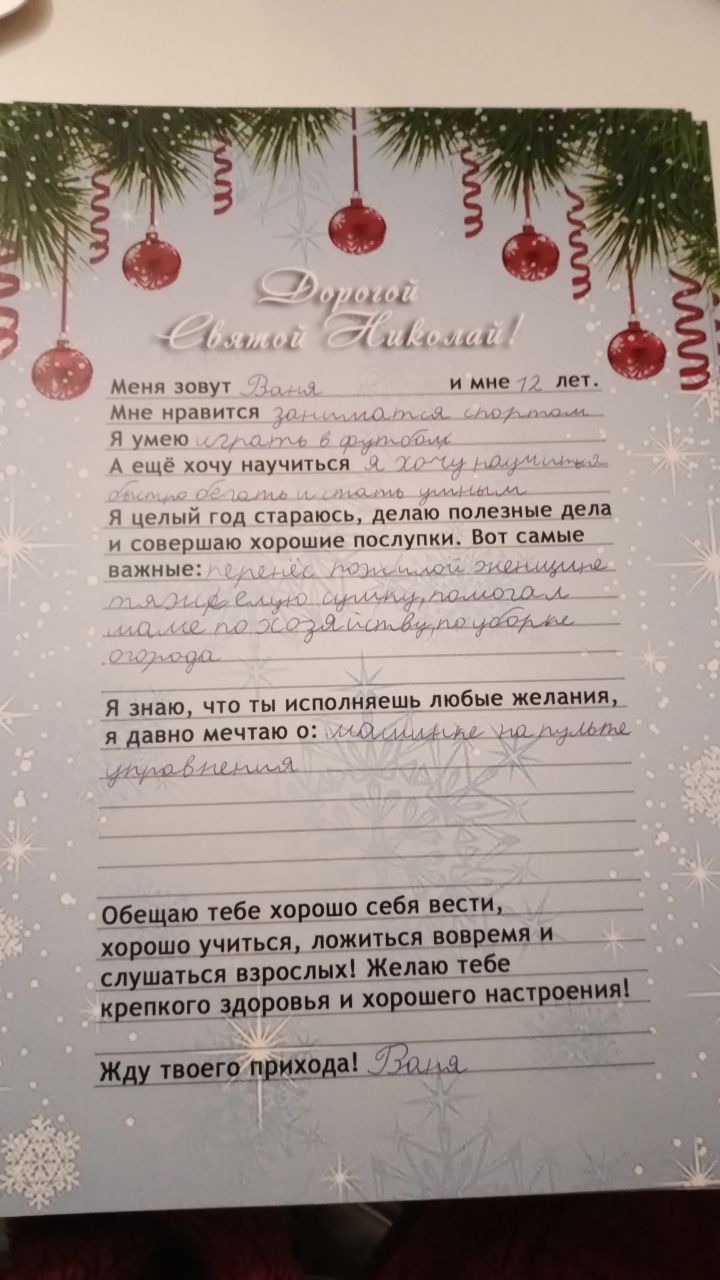 Дорогой
Святой Николай!
Меня зовут Ваня и мне 12 лет.
Мне нравится заниматся спортом
Я умею играть в футбол
А ещё хочу научиться я хочу научиться
быстро бегать и стать умным
Я целый год стараюсь, делаю полезные дела
и совершаю хорошие послупки. Вот самые
важные: перенёс пожилой женщине
тяжёлую сумку, помогал
маме по хозяйству, по уборке
огорода
Я знаю, что ты исполняешь любые желания,
я давно мечтаю о: машинке на пульте
управления
Обещаю тебе хорошо себя вести,
хорошо учиться, ложиться вовремя и
слушаться взрослых! Желаю тебе
крепкого здоровья и хорошего настроения!
Жду твоего прихода! Ваня